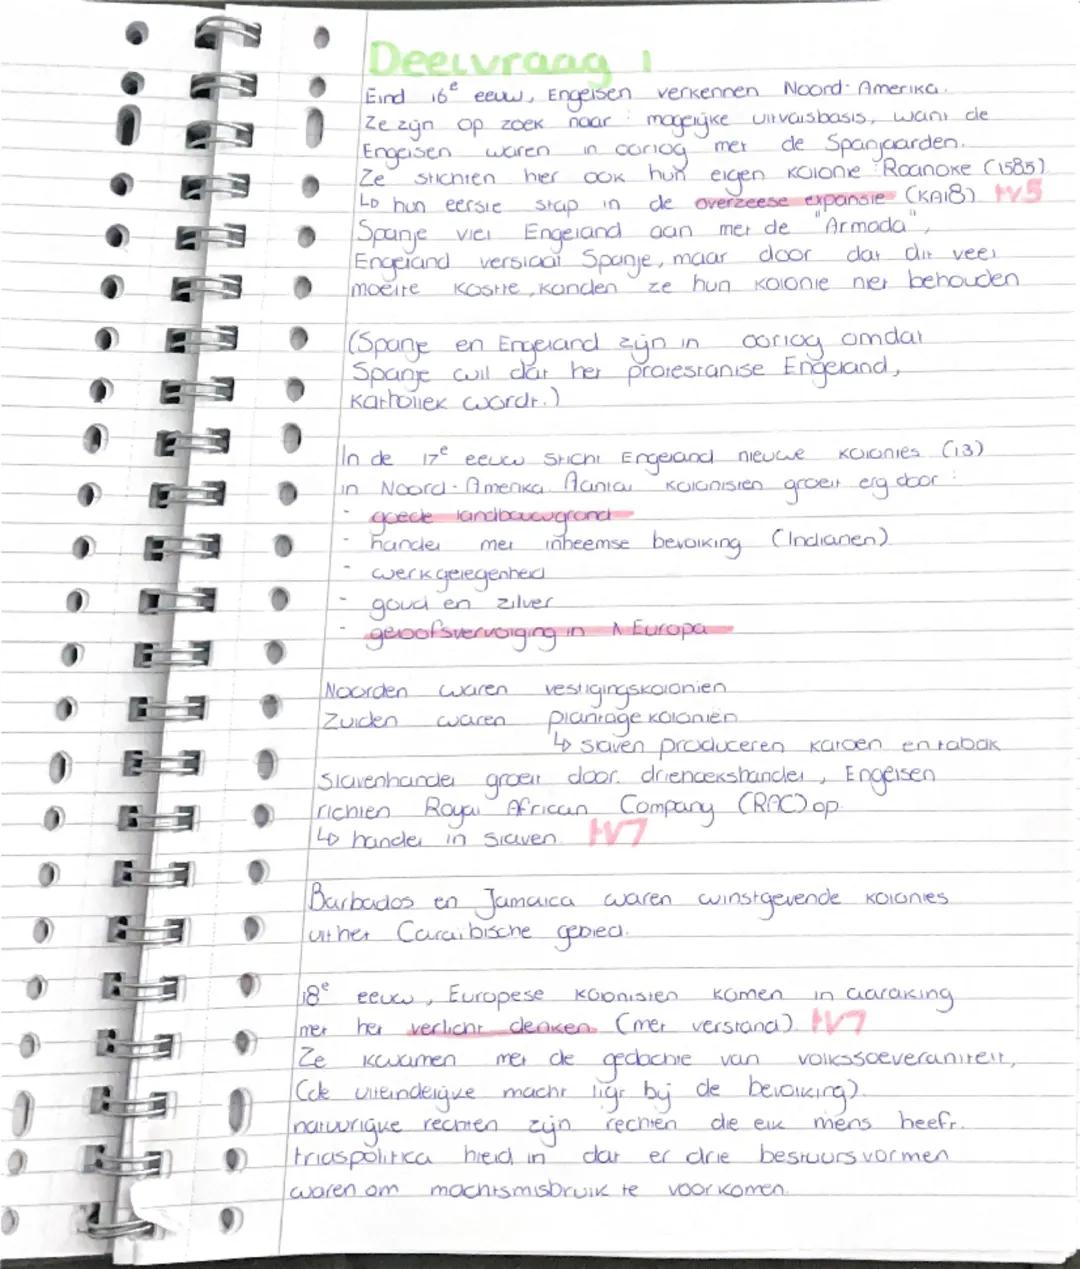 Deelvraag 1
Eind 16e eeuw, Engelsen verkennen Noord-Amerika.
Ze zijn op zoek naar mogelijke uitvalsbasis, want de
Engelsen waren in oorlog met de Spanjaarden.
Ze stichten hier ook hun eigen kolonie Roanoke (1585)
↳ hun eerste stap in de overzeese expansie (KA18) HV5
Spanje viel Engeland aan met de "Armada",
Engeland verslaat Spanje, maar door dat dit veel
moeite kostte, konden ze hun kolonie niet behouden
(Spanje en Engeland zijn in oorlog omdat
Spanje wil dat het protestantse Engeland,
Katholiek wordt.)
In de 17e eeuw sticht Engeland nieuwe kolonies (13)
in Noord-Amerika. Aantal kolonisten groeit erg door:
- goede landbouwgrond
- handel met inheemse bevolking (Indianen)
- werkgelegenheid
- goud en zilver
- geloofsvervolging in Europa
Noorden waren vestigingskolonien
Zuiden waren plantage koloniën
↳ slaven produceren katoen en tabak
Slavenhandel groeit door driehoekshandel, Engelsen
richten Royal African Company (RAC) op.
↳ handel in slaven. HV7
Barbados en Jamaica waren winstgevende kolonies
uit het Caraïbische gebied.
18e eeuw, Europese kolonisten komen in aaraking
met het verlicht denken (met verstand) HV7
Ze kwamen met de gedachte van volkssoeveraniteit,
(de uiteindelijke macht ligt bij de bevolking).
natuurlijke rechten zijn rechten die elk mens heeft.
triaspolitica hield in dat er drie bestuursvormen
waren om machtsmisbruik te voorkomen.